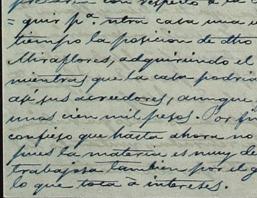 con respecto a la
= quir pª. ntra casa una
tiempo la posicion de dho
Miraflores, adquiriendo el
mientras que la casa podria
asi sus acreedores, aunque
unos cien mil pesos. Por fin
confieso que hasta ahora no
pues la materia es muy de
trabajosa tambien por el
lo que toca a intereses.